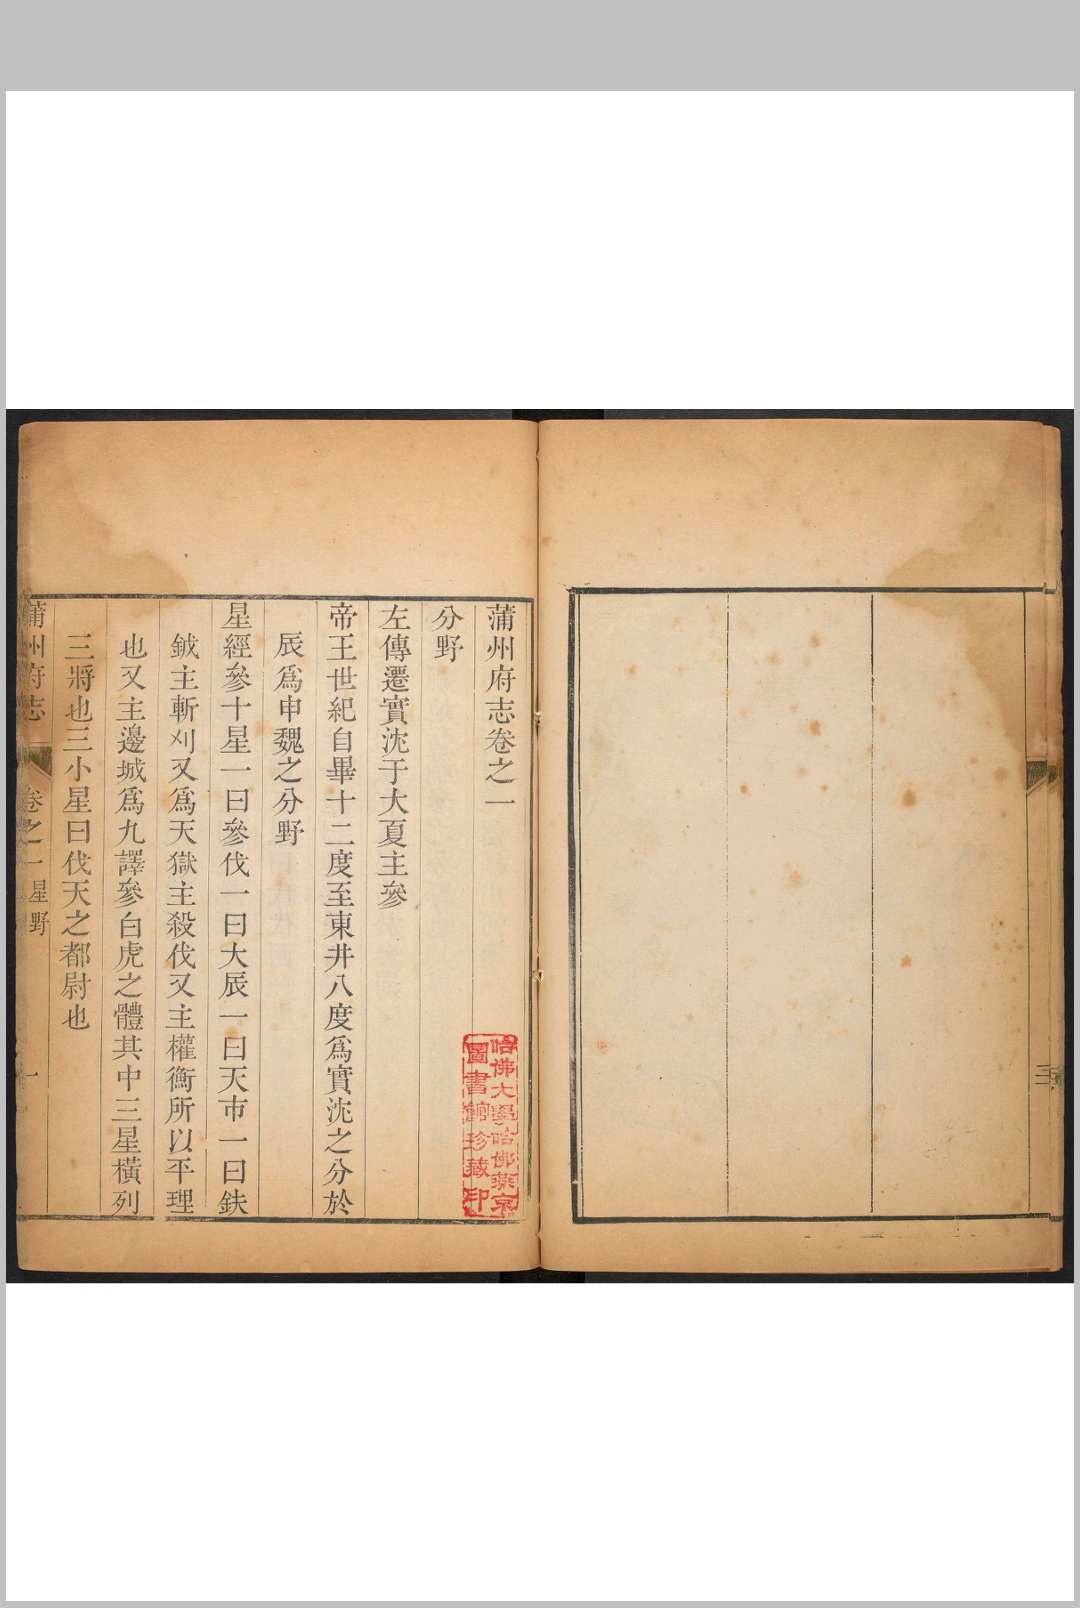 蒲州府志卷之一
分野
左傳遷實沈于大夏主參
帝王世紀自畢十二度至東井八度爲實沈之分於
辰爲申魏之分野
星經參十星一曰參伐一曰大辰一曰天市一曰鈇
鉞主斬刈又爲天獄主殺伐又主權衡所以平理
也又主邊城爲九譯參白虎之體其中三星橫列
三將也三小星曰伐天之都尉也
蒲州府志
卷之一
星野
一
哈佛大學哈佛燕京
圖書館珍藏印